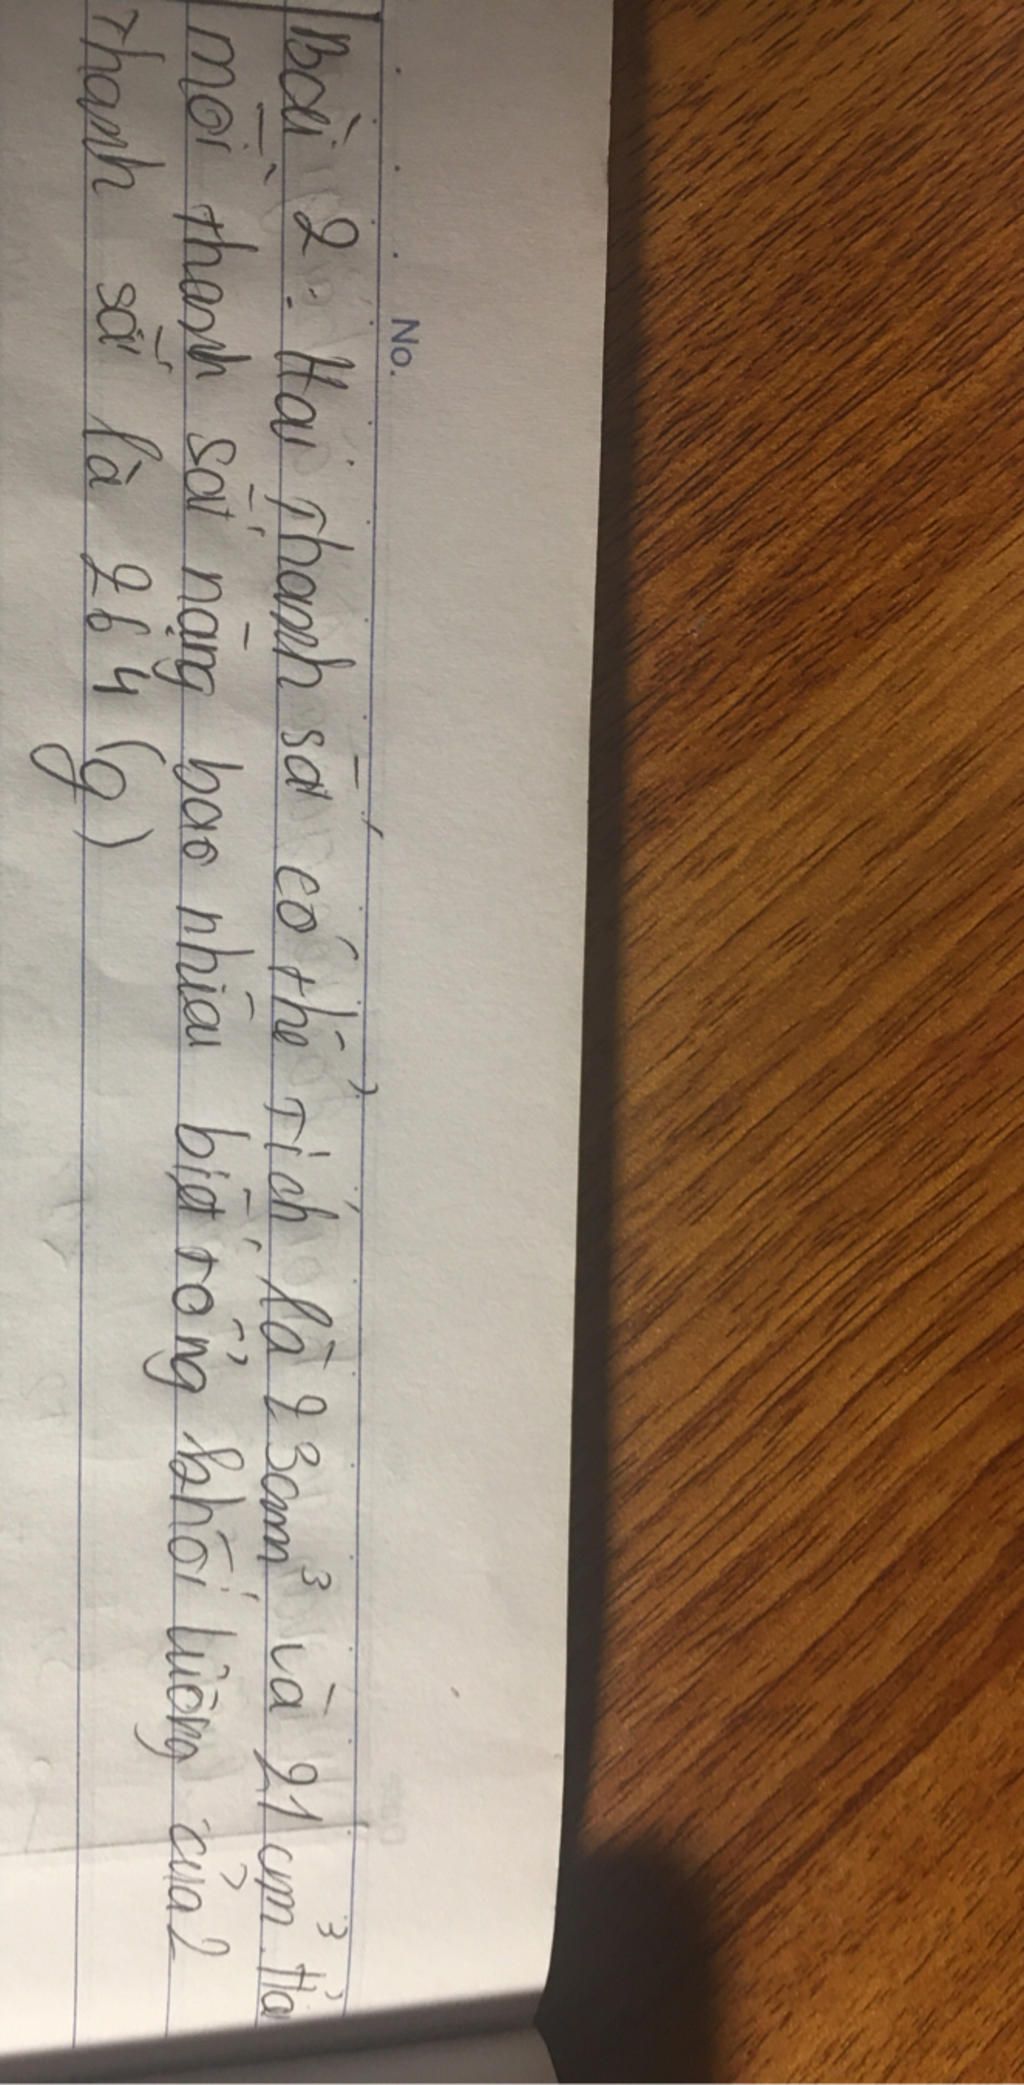 No.
Bài 2: Hai thanh sắt có thể tích là 23cm³ và 21cm³. Hỏi
mỗi thanh sắt nặng bao nhiêu biết tổng khối lượng của 2
thanh sắt là 264 (g)